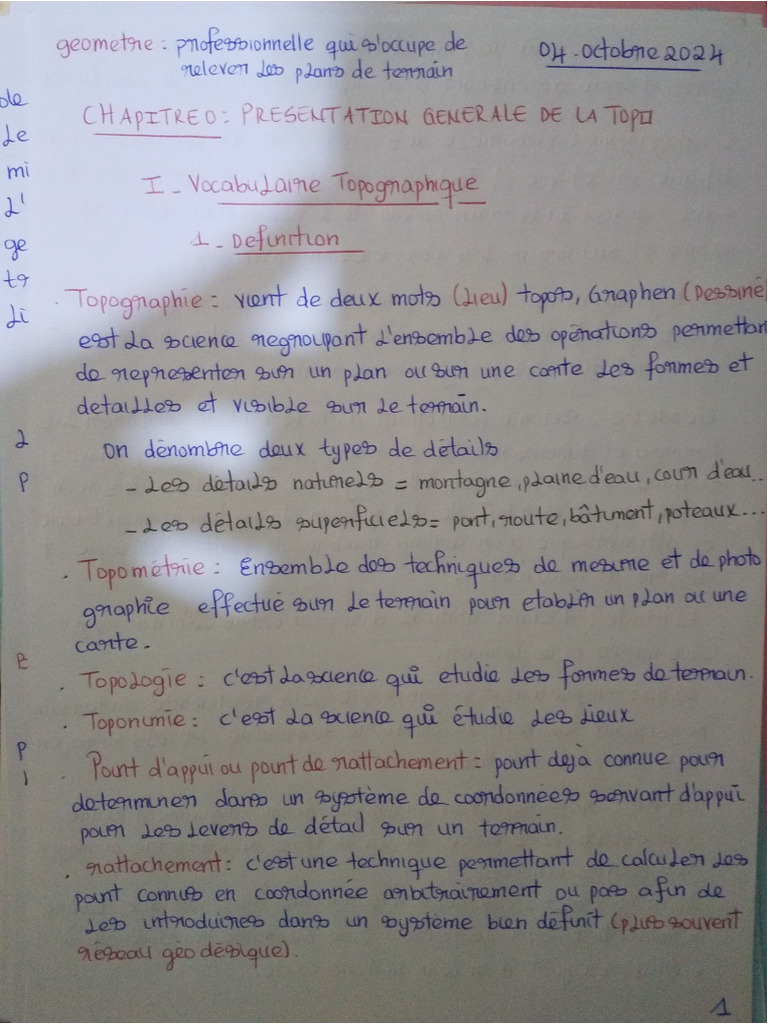 geometrie : professionnelle qui s'occupe de
relever les plans de terrain
04-octobre 2024
CHAPITRE 0 : PRESENTATION GENERALE DE LA TOPO
I - Vocabulaire Topographique
1 - Definition
de
Le
mi
L'
ge
tr
Li
. Topographie : vient de deux mots (Lieu) topos, Graphen (Dessiné)
est la science regroupant l'ensemble des opérations permettan
de representer sur un plan ou sur une carte les formes et
detailles et visible sur le terrain.
on dénombre deux types de détails
- Les détails naturels = montagne, plaine d'eau, cour d'eau..
- Les détails superficiels = pont, route, bâtiment, poteaux...
. Topométrie : Ensemble des techniques de mesure et de photo
graphie effectué sur le terrain pour etablir un plan ou une
carte.
. Topologie : c'est la science qui etudie les formes de terrain.
. Toponimie : c'est la science qui étudie les lieux
. Point d'appui ou point de rattachement : point dejà connue pour
determiner dans un système de coordonnées servant d'appui
pour les levers de détail sur un terrain.
. rattachement : c'est une technique permettant de calculer les
point connus en coordonnée arbitrairement ou pas afin de
les introduires dans un système bien définit (plus souvent
réseau géodésique).
1